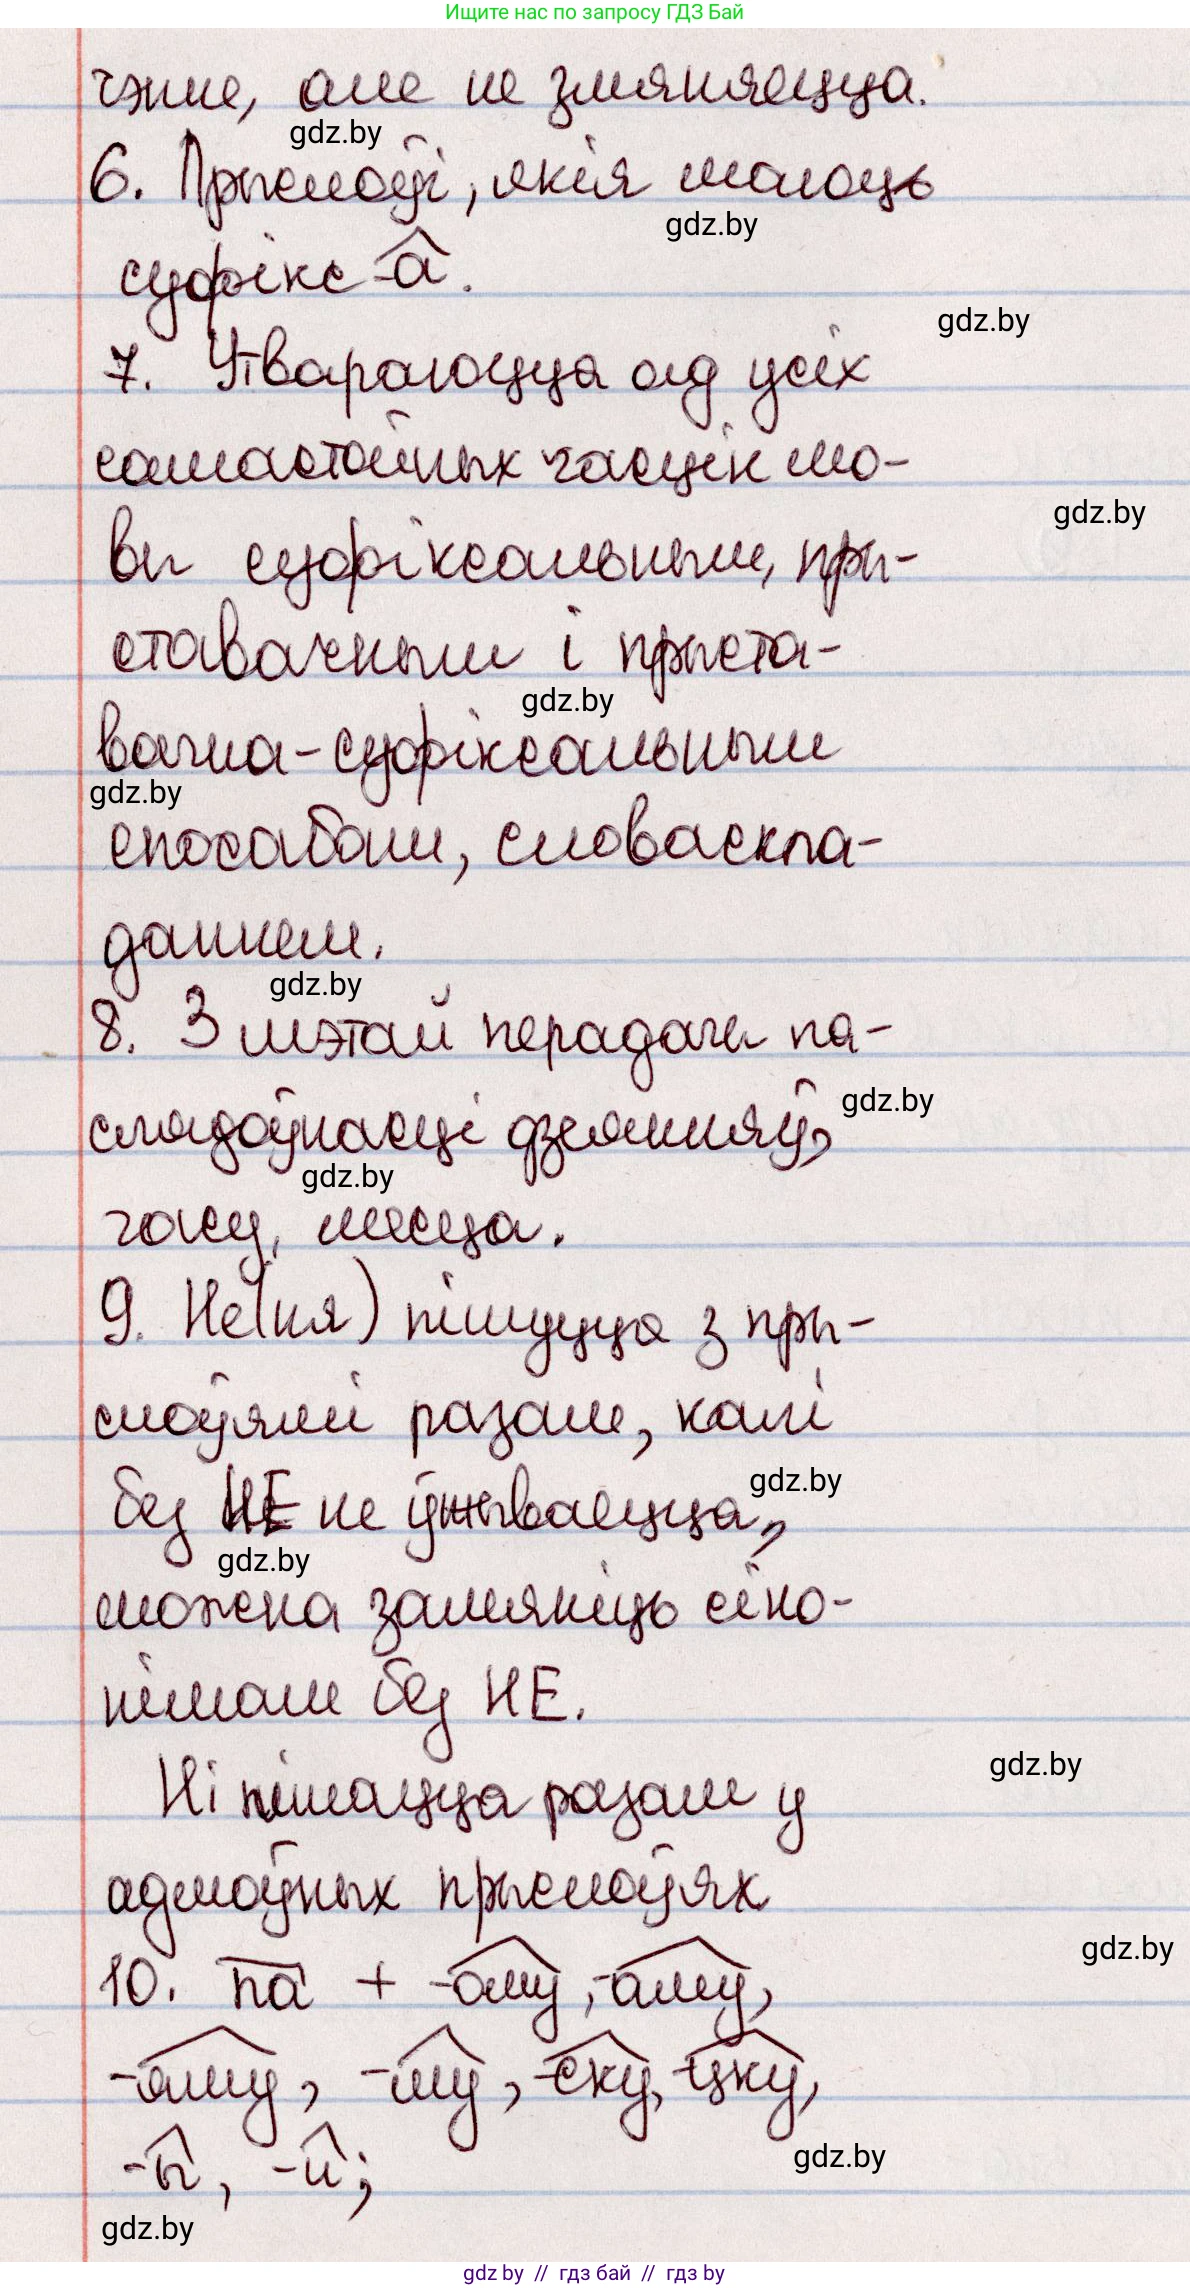 Ищите нас по запросу ГДЗ Бай
чэнне, але не змяняецца.
gdz.by
6. Прыслоўі, якія маюць
gdz.by
суфікс -а.
gdz.by
7. Утвараюцца ад усіх
самастойных часцін мо-
gdz.by
вы суфіксальным, пры-
ставачным і прыста-
gdz.by
вачна-суфіксальным
gdz.by
спосабам, словаскла-
даннем.
gdz.by
8. З мэтай перадачы па-
слядоўнасці дзеянняў,
gdz.by
gdz.by
часу, месца.
9. Не(ня) пішуцца з пры-
слоўямі разам, калі
без НЕ не ўжываецца,
gdz.by
gdz.by
можна замяніць сіно-
німам без НЕ.
gdz.by
Ні пішацца разам у
адмоўных прыслоўях
gdz.by
10. па + -ому, -аму,
-яму, -му, -ску, -цку,
-ы, -і;
gdz.by
gdz.by
gdz.by // гдз бай // гдз by